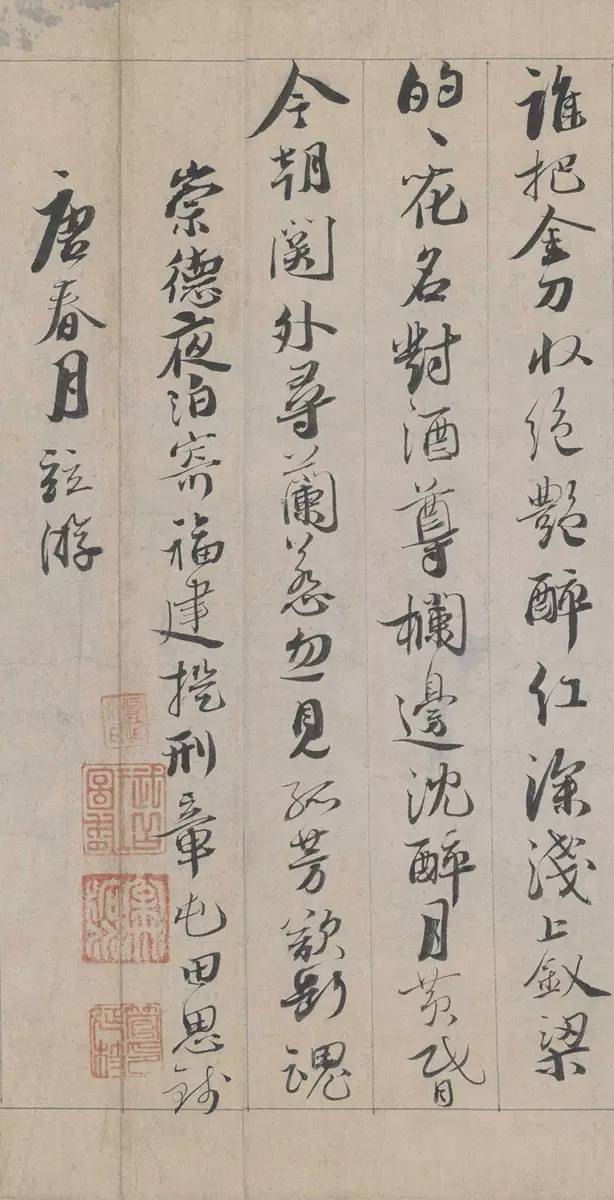 誰把金刀收絕艷醉紅深淺上釵梁
的々花名對酒尊欄邊沈醉月黃昏
今朝関外尋蘭蕙忽見孤芳欲斷魂
崇德夜泊寄福建提刑章屯田思錢
唐春月並游